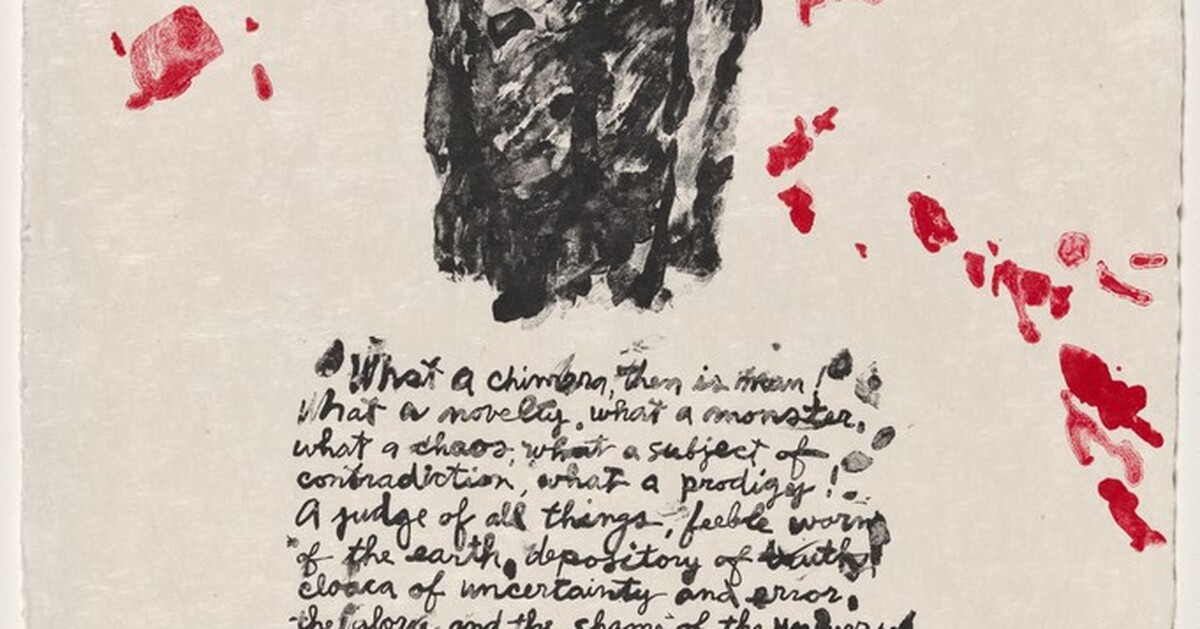 What a chimera, then is man!
What a novelty, what a monster,
what a chaos, what a subject of
contradiction, what a prodigy!
A judge of all things, feeble worm
of the earth, depository of truth,
cloaca of uncertainty and error,
the glory and the shame of the